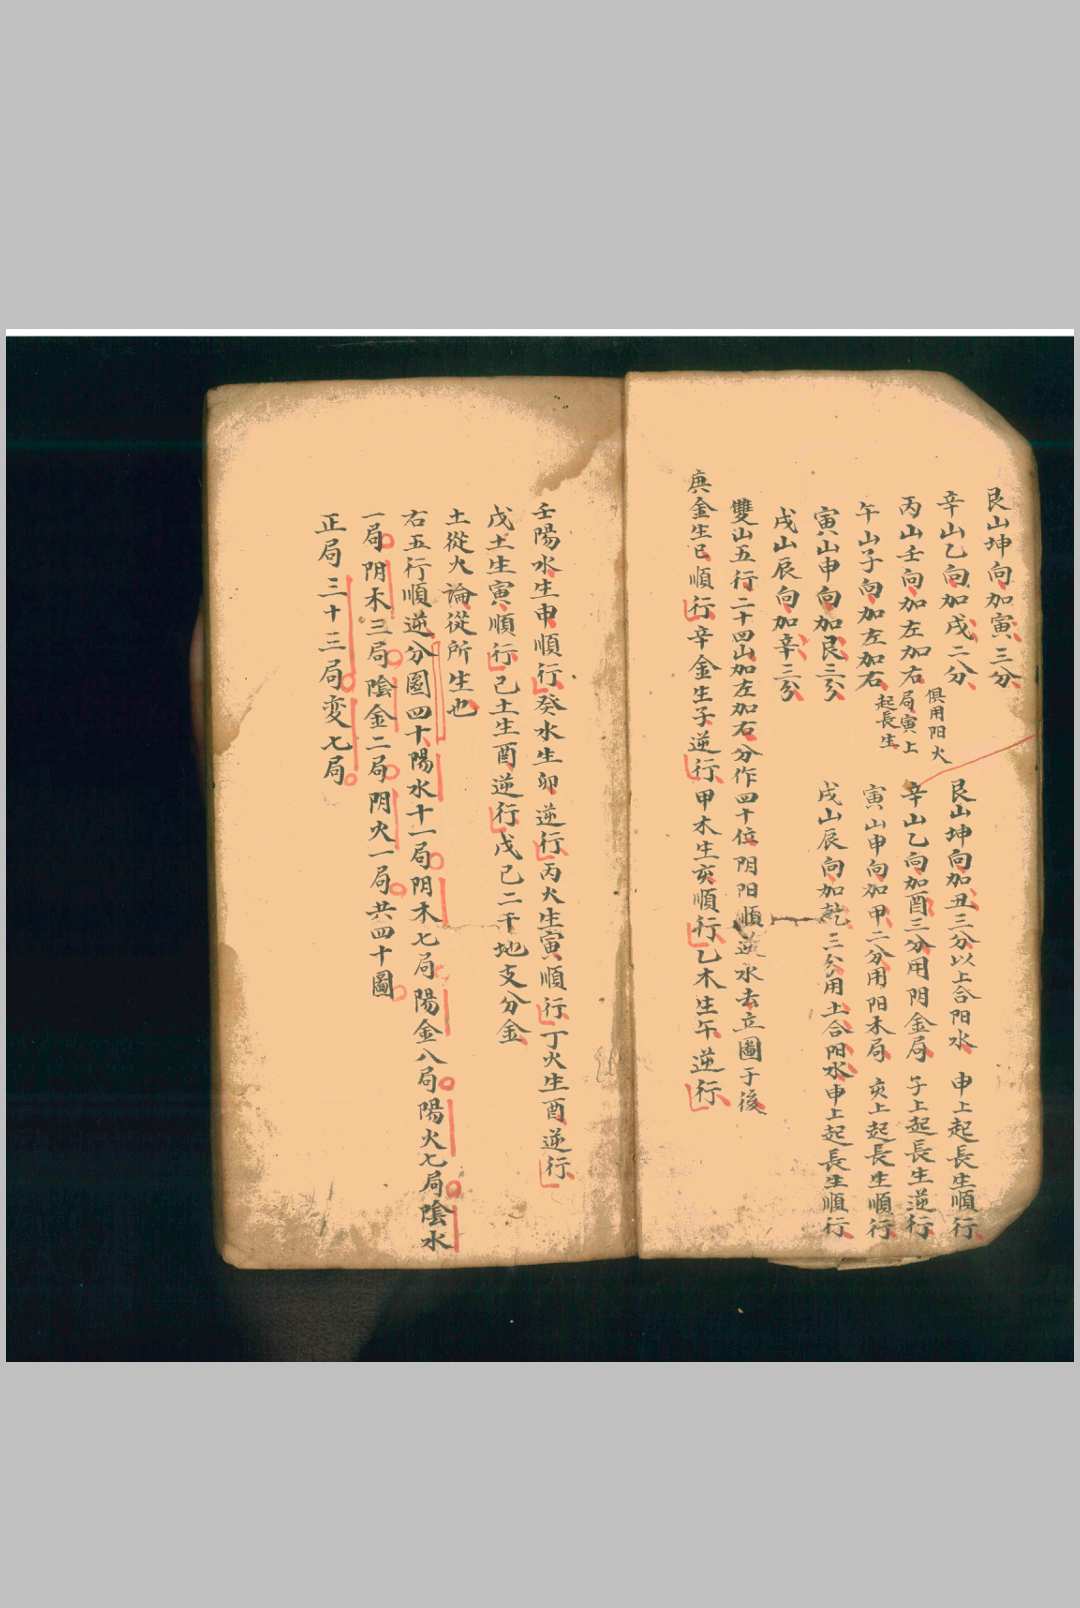 艮山坤向加寅三分
艮山坤向加丑三分以上合阳水 申上起長生順行
辛山乙向加戌二分
辛山乙向加酉三分用阴金局 子上起長生逆行
丙山壬向加左加右
俱用阳火
局寅上
起長生
午山子向加左加右
寅山申向加甲二分用阳木局 亥上起長生順行
寅山申向加艮三分
戌山辰向加乾三分用土合阳水申上起長生順行
戌山辰向加辛三分
雙山五行二十四山加左加右分作四十位阴阳順逆水去立圖于後
庚金生巳順行辛金生子逆行甲木生亥順行乙木生午逆行
壬陽水生申順行癸水生卯逆行丙火生寅順行丁火生酉逆行
戊土生寅順行己土生酉逆行戊己二干地支分金
土從火論從所生也
右五行順逆分圖四十陽水十一局阴木七局陽金八局陽火七局陰水
一局阴木三局陰金二局阴火一局共四十圖
正局三十三局変七局